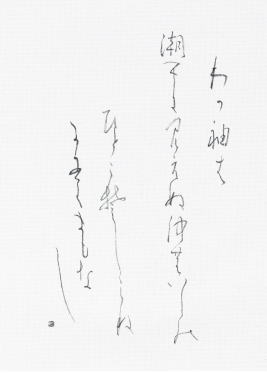 わか袖は
潮ひに見えぬ沖のいしの
ひとこそしらね
かわくまもなし